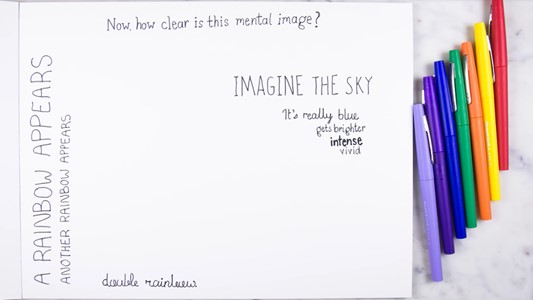 Now, how clear is this mental image?
IMAGINE THE SKY
It's really blue
gets brighter
intense
vivid
A RAINBOW APPEARS
ANOTHER RAINBOW APPEARS
double rainbow